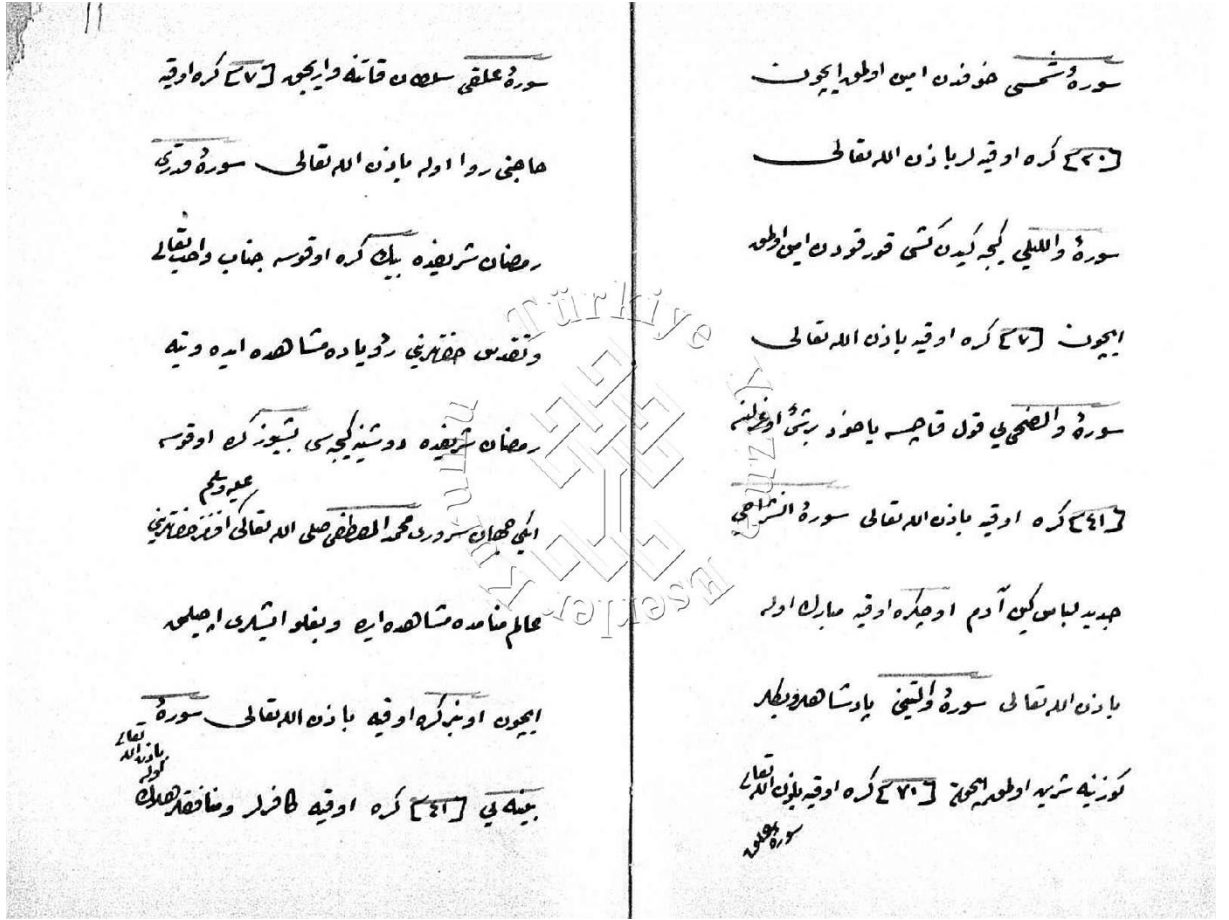 سورهٔ شمسی خوفدن امین اولمق ایچون
[٢٠] کره اوقیه لر باذن الله تعالی
سورهٔ واللیلی کیجه کیدن کشی قورقودن امین اولمق
ایچون [٧] کره اوقیه باذن الله تعالی
سورهٔ والضحی یی قول قاچسه یاخود برشئ اوغرلنسه
[٤١] کره اوقیه باذن الله تعالی سورهٔ انشراحی
جدید لباس کین آدم اوچ کره اوقیه مبارك اوله
باذن الله تعالی سورهٔ والتینی پادشاهلر و بکلر
کوزینه شرین اولمق ایچون [٧٠] کره اوقیه باذن الله تعالی
سورهٔ علق
سورهٔ علقی سلطان قاتنه واریجق [٧] کره اوقیه
حاجتی روا اوله باذن الله تعالی سورهٔ قدری
رمضان شریفده بیك کره اوقوسه جناب واجب تعالی
وتقدس حضرتلرینی رؤیاده مشاهده ایده وینه
رمضان شریفده دوشنبه کیجه سی بشیوز کره اوقوسه
ایکی جهان سروری محمد المصطفی صلی الله تعالی علیه وسلم افندمز حضرتلرینی
عالم منامده مشاهده ایده وبغلو ایشلری اچلمق
ایچون اون بر کره اوقیه باذن الله تعالی سورهٔ
بینه یی [٤١] کره اوقیه کافرلر ومنافقلر هلاك اوله باذن الله تعالی
Türkiye Yazma Eserler Kurumu